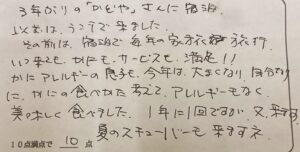 3年ぶりの「かどや」さんに宿泊
以前は、うつうで来ました。
その前は、宿泊で毎年の家族旅行
いつ来ても、かにも、サービスも、満足!!
かにアレルギーの息子も、今年は、大きくなり、自分なり
に、かにの食べかた考えて、アレルギーもなく
美味しく食べました。1年に1回ですが、又、来ます。
夏のスキューバーも来ますネ
10点満点で 10 点